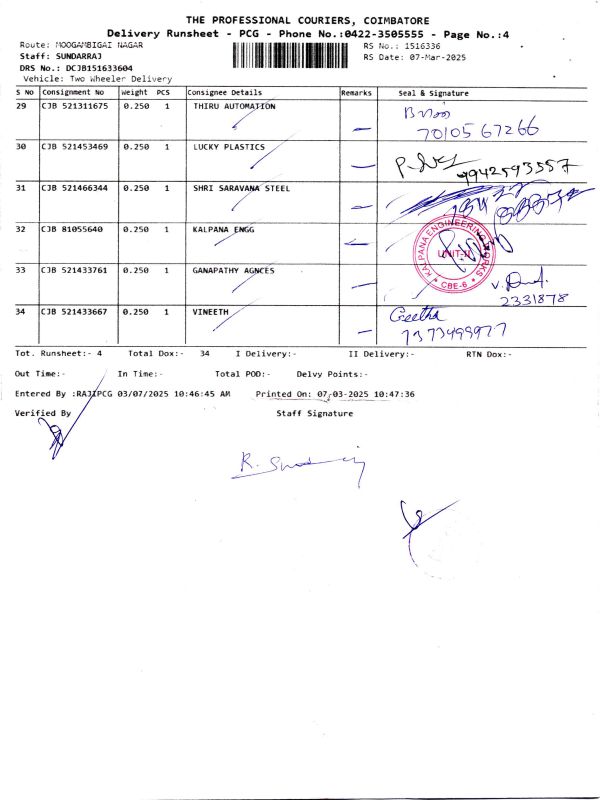 THE PROFESSIONAL COURIERS, COIMBATORE
Delivery Runsheet - PCG - Phone No.:0422-3505555 - Page No.:4
Route: MOOGAMBIGAI NAGAR RS No.: 1516336
Staff: SUNDARRAJ RS Date: 07-Mar-2025
DRS No.: DCJB151633604
Vehicle: Two Wheeler Delivery
S No Consignment No Weight PCS Consignee Details Remarks Seal & Signature
29 CJB 521311675 0.250 1 THIRU AUTOMATION
7010567266
30 CJB 521453469 0.250 1 LUCKY PLASTICS
9942593557
31 CJB 521466344 0.250 1 SHRI SARAVANA STEEL
32 CJB 81055640 0.250 1 KALPANA ENGG
KALPANA ENGINEERING WORKS
UNIT-II
CBE-6
33 CJB 521433761 0.250 1 GANAPATHY AGNCES
2331878
34 CJB 521433667 0.250 1 VINEETH Geetha
7373499977
Tot. Runsheet:- 4 Total Dox:- 34 I Delivery:- II Delivery:- RTN Dox:-
Out Time:- In Time:- Total POD:- Delvy Points:-
Entered By :RAJIPCG 03/07/2025 10:46:45 AM Printed On: 07-03-2025 10:47:36
Verified By Staff Signature